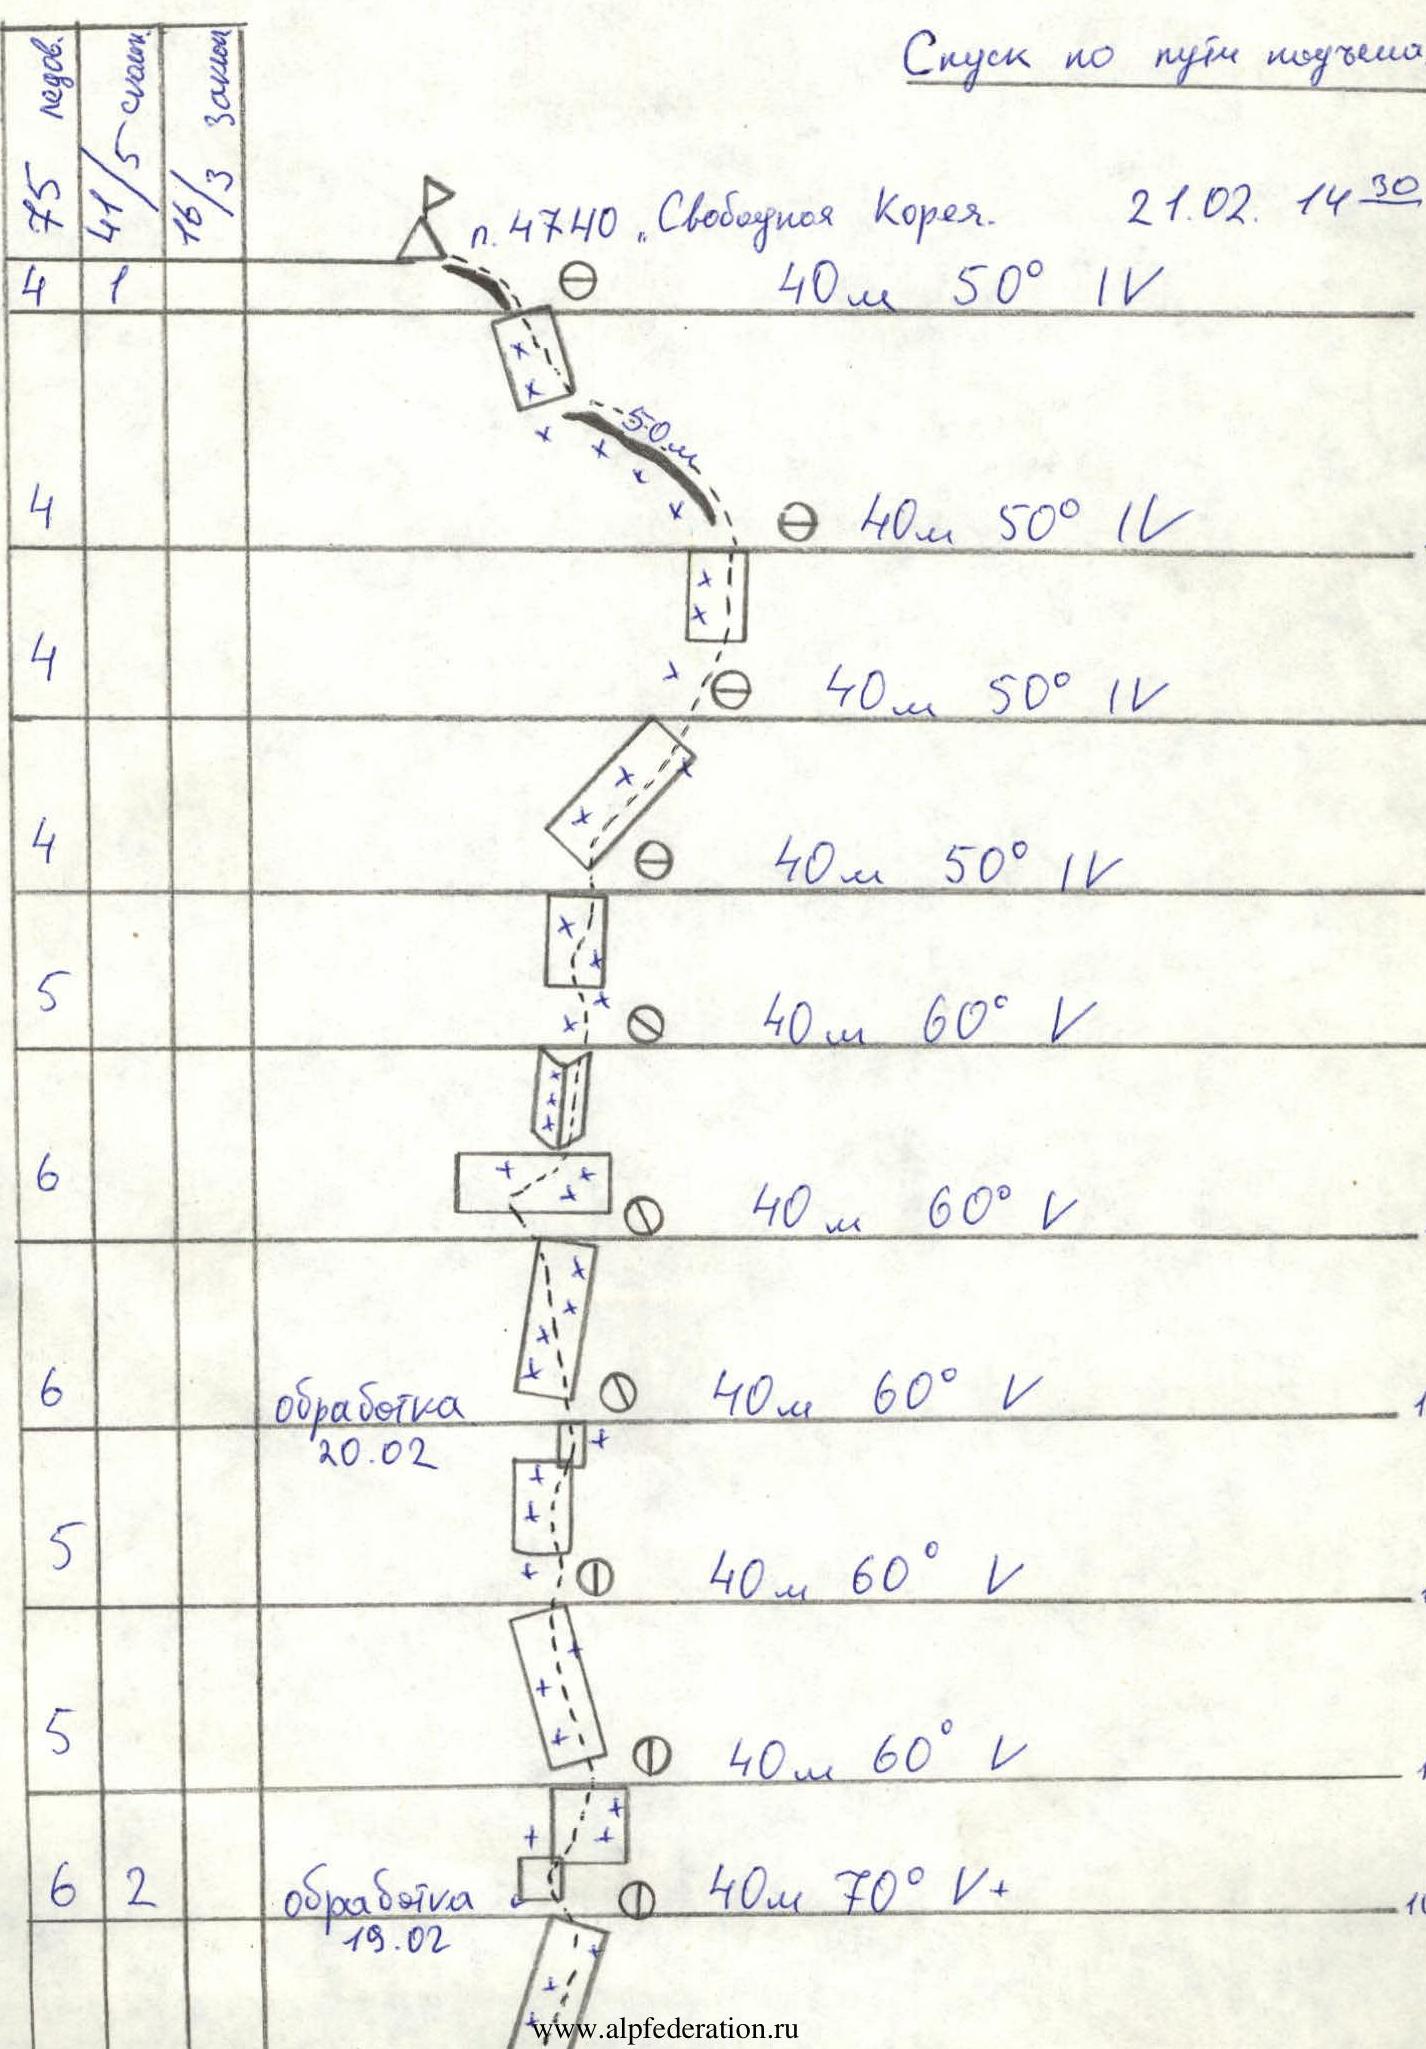 Спуск по пути подъема
75 ледов.
41/5 скальн.
16/3 заклад
п. 4740 "Свободная Корея. 21.02. 14 30
4 1 40м 50° IV
50м
4 40м 50° IV
4 40м 50° IV
4 40м 50° IV
5 40м 60° V
6 40м 60° V
6 обработка 40м 60° V
20.02
5 40м 60° V
5 40м 60° V
6 2 обработка 40м 70° V+
19.02
www.alpfederation.ru